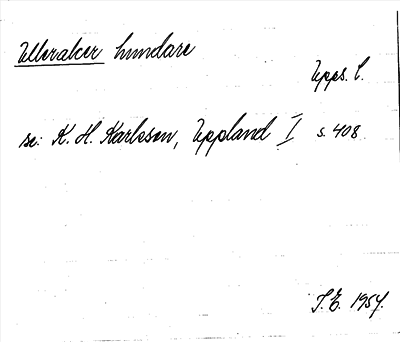 Ulleraker hundare
Upps. l.
se: K. H. Karlsson, Uppland I s. 408
J.E. 1954.